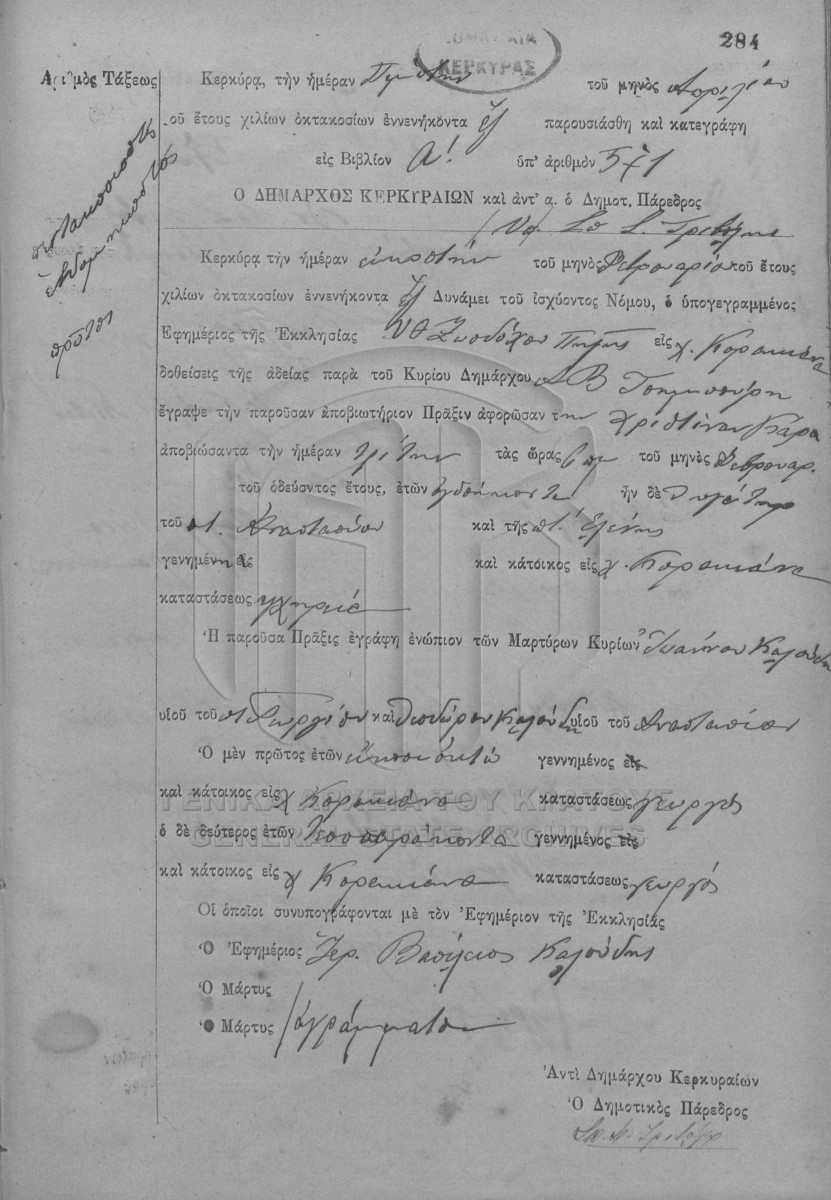 284
ΚΕΡΚΥΡΑΣ
Ἀριθμὸς Τάξεως
πεντακοσιοστὸς
ἑβδομηκοστὸς
πρῶτος
Κερκύρα, τὴν ἡμέραν Πέμπτην τοῦ μηνὸς Ἀπριλίου
τοῦ ἔτους χιλίων ὀκτακοσίων ἐννενήκοντα ἓξ παρουσιάσθη καὶ κατεγράφη
εἰς Βιβλίον Α! ὑπ' ἀριθμὸν 571
Ο ΔΗΜΑΡΧΟΣ ΚΕΡΚΥΡΑΙΩΝ καὶ ἀντ' α. ὁ Δημοτ. Πάρεδρος
Κερκύρα τὴν ἡμέραν εἰκοστὴν τοῦ μηνὸς Φεβρουαρίου τοῦ ἔτους
χιλίων ὀκτακοσίων ἐννενήκοντα ἓξ Δυνάμει τοῦ ἰσχύοντος Νόμου, ὁ ὑπογεγραμμένος
Ἐφημέριος τῆς Ἐκκλησίας ΥΘ Ζωοδόχου Πηγῆς εἰς χ. Κορακιάνα
δοθείσης τῆς ἀδείας παρὰ τοῦ Κυρίου Δημάρχου
ἔγραψε τὴν παροῦσαν ἀποβιωτήριον Πρᾶξιν ἀφορῶσαν την Χριστίναν
ἀποβιώσαντα τὴν ἡμέραν τρίτην τὰς ὥρας τοῦ μηνὸς Φεβρουαρ.
τοῦ ὁδεύοντος ἔτους, ἐτῶν ὀγδοήκοντα ἦν δὲ θυγάτηρ
τοῦ π. Ἀναστασίου καὶ τῆς π. Ἑλένης
γενημένη εἰς καὶ κάτοικος εἰς χ. Κορακιάνα
καταστάσεως χήρα
Ἡ παροῦσα Πρᾶξις ἐγράφη ἐνώπιον τῶν Μαρτύρων Κυρίων Ἰωάννου Καλούδη
υἱοῦ τοῦ π. Γεωργίου καὶ Θεοδώρου Καλούδη υἱοῦ τοῦ Ἀναστασίου
Ὁ μὲν πρῶτος ἐτῶν εἴκοσι ὀκτὼ γεννημένος εἰς
καὶ κάτοικος εἰς χ Κορακιάνα καταστάσεως γεωργὸς
ὁ δὲ δεύτερος ἐτῶν Τεσσαράκοντα γεννημένος εἰς
καὶ κάτοικος εἰς χ Κορακιάνα καταστάσεως γεωργός
Οἱ ὁποῖοι συνυπογράφονται μὲ τὸν Ἐφημέριον τῆς Ἐκκλησίας
Ὁ Ἐφημέριος Ἱερ. Βασίλειος Καλούδης
Ὁ Μάρτυς
Ὁ Μάρτυς ἀγράμματοι
Ἀντὶ Δημάρχου Κερκυραίων
Ὁ Δημοτικὸς Πάρεδρος
ΓΕΝΙΚΑ ΑΡΧΕΙΑ ΤΟΥ ΚΡΑΤΟΥΣ
GENERAL STATE ARCHIVES